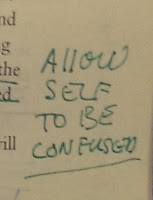 and
ng
the
ed
will
Allow
SELF
TO BE
CONFUSED